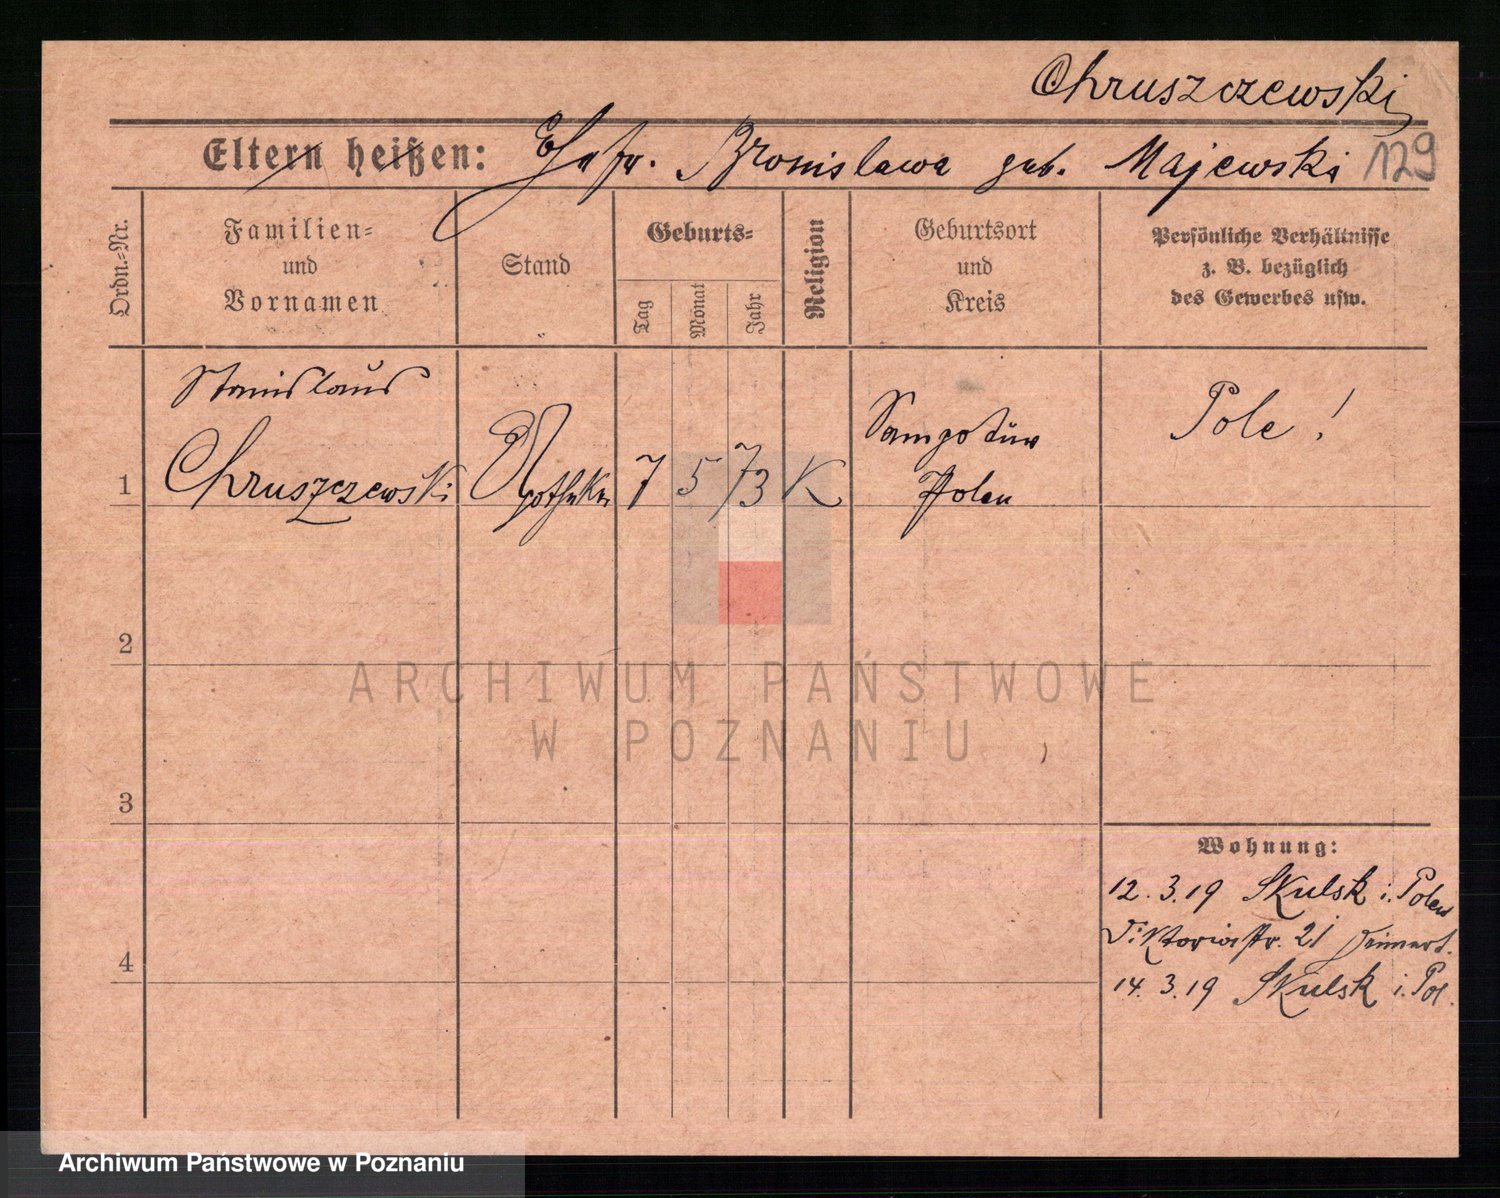 Chruszczewski
Eltern heißen: Ehefr. Bronislawa geb. Majewski 129
Ordn.-Nr.
Familien-
und
Vornamen
Stand
Geburts-
Tag
Monat
Jahr
Religion
Geburtsort
und
Kreis
Persönliche Verhältnisse
z. B. bezüglich
des Gewerbes usw.
Stanislaus
Chruszczewski
1
Apotheker
7 5 73 K
Polen
Pole !
2
ARCHIWUM PAŃSTWOWE
W POZNANIU
3
Wohnung:
12. 3. 19 Skulsk i. Polen
Viktoriastr. 21
4
14. 3. 19 Skulsk i. Pol.
Archiwum Państwowe w Poznaniu